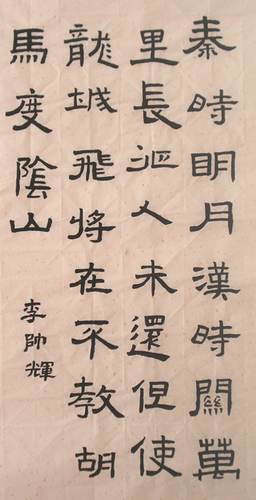 秦時明月漢時關萬
里長征人未還但使
龍城飛將在不教胡
馬度陰山
李帥輝